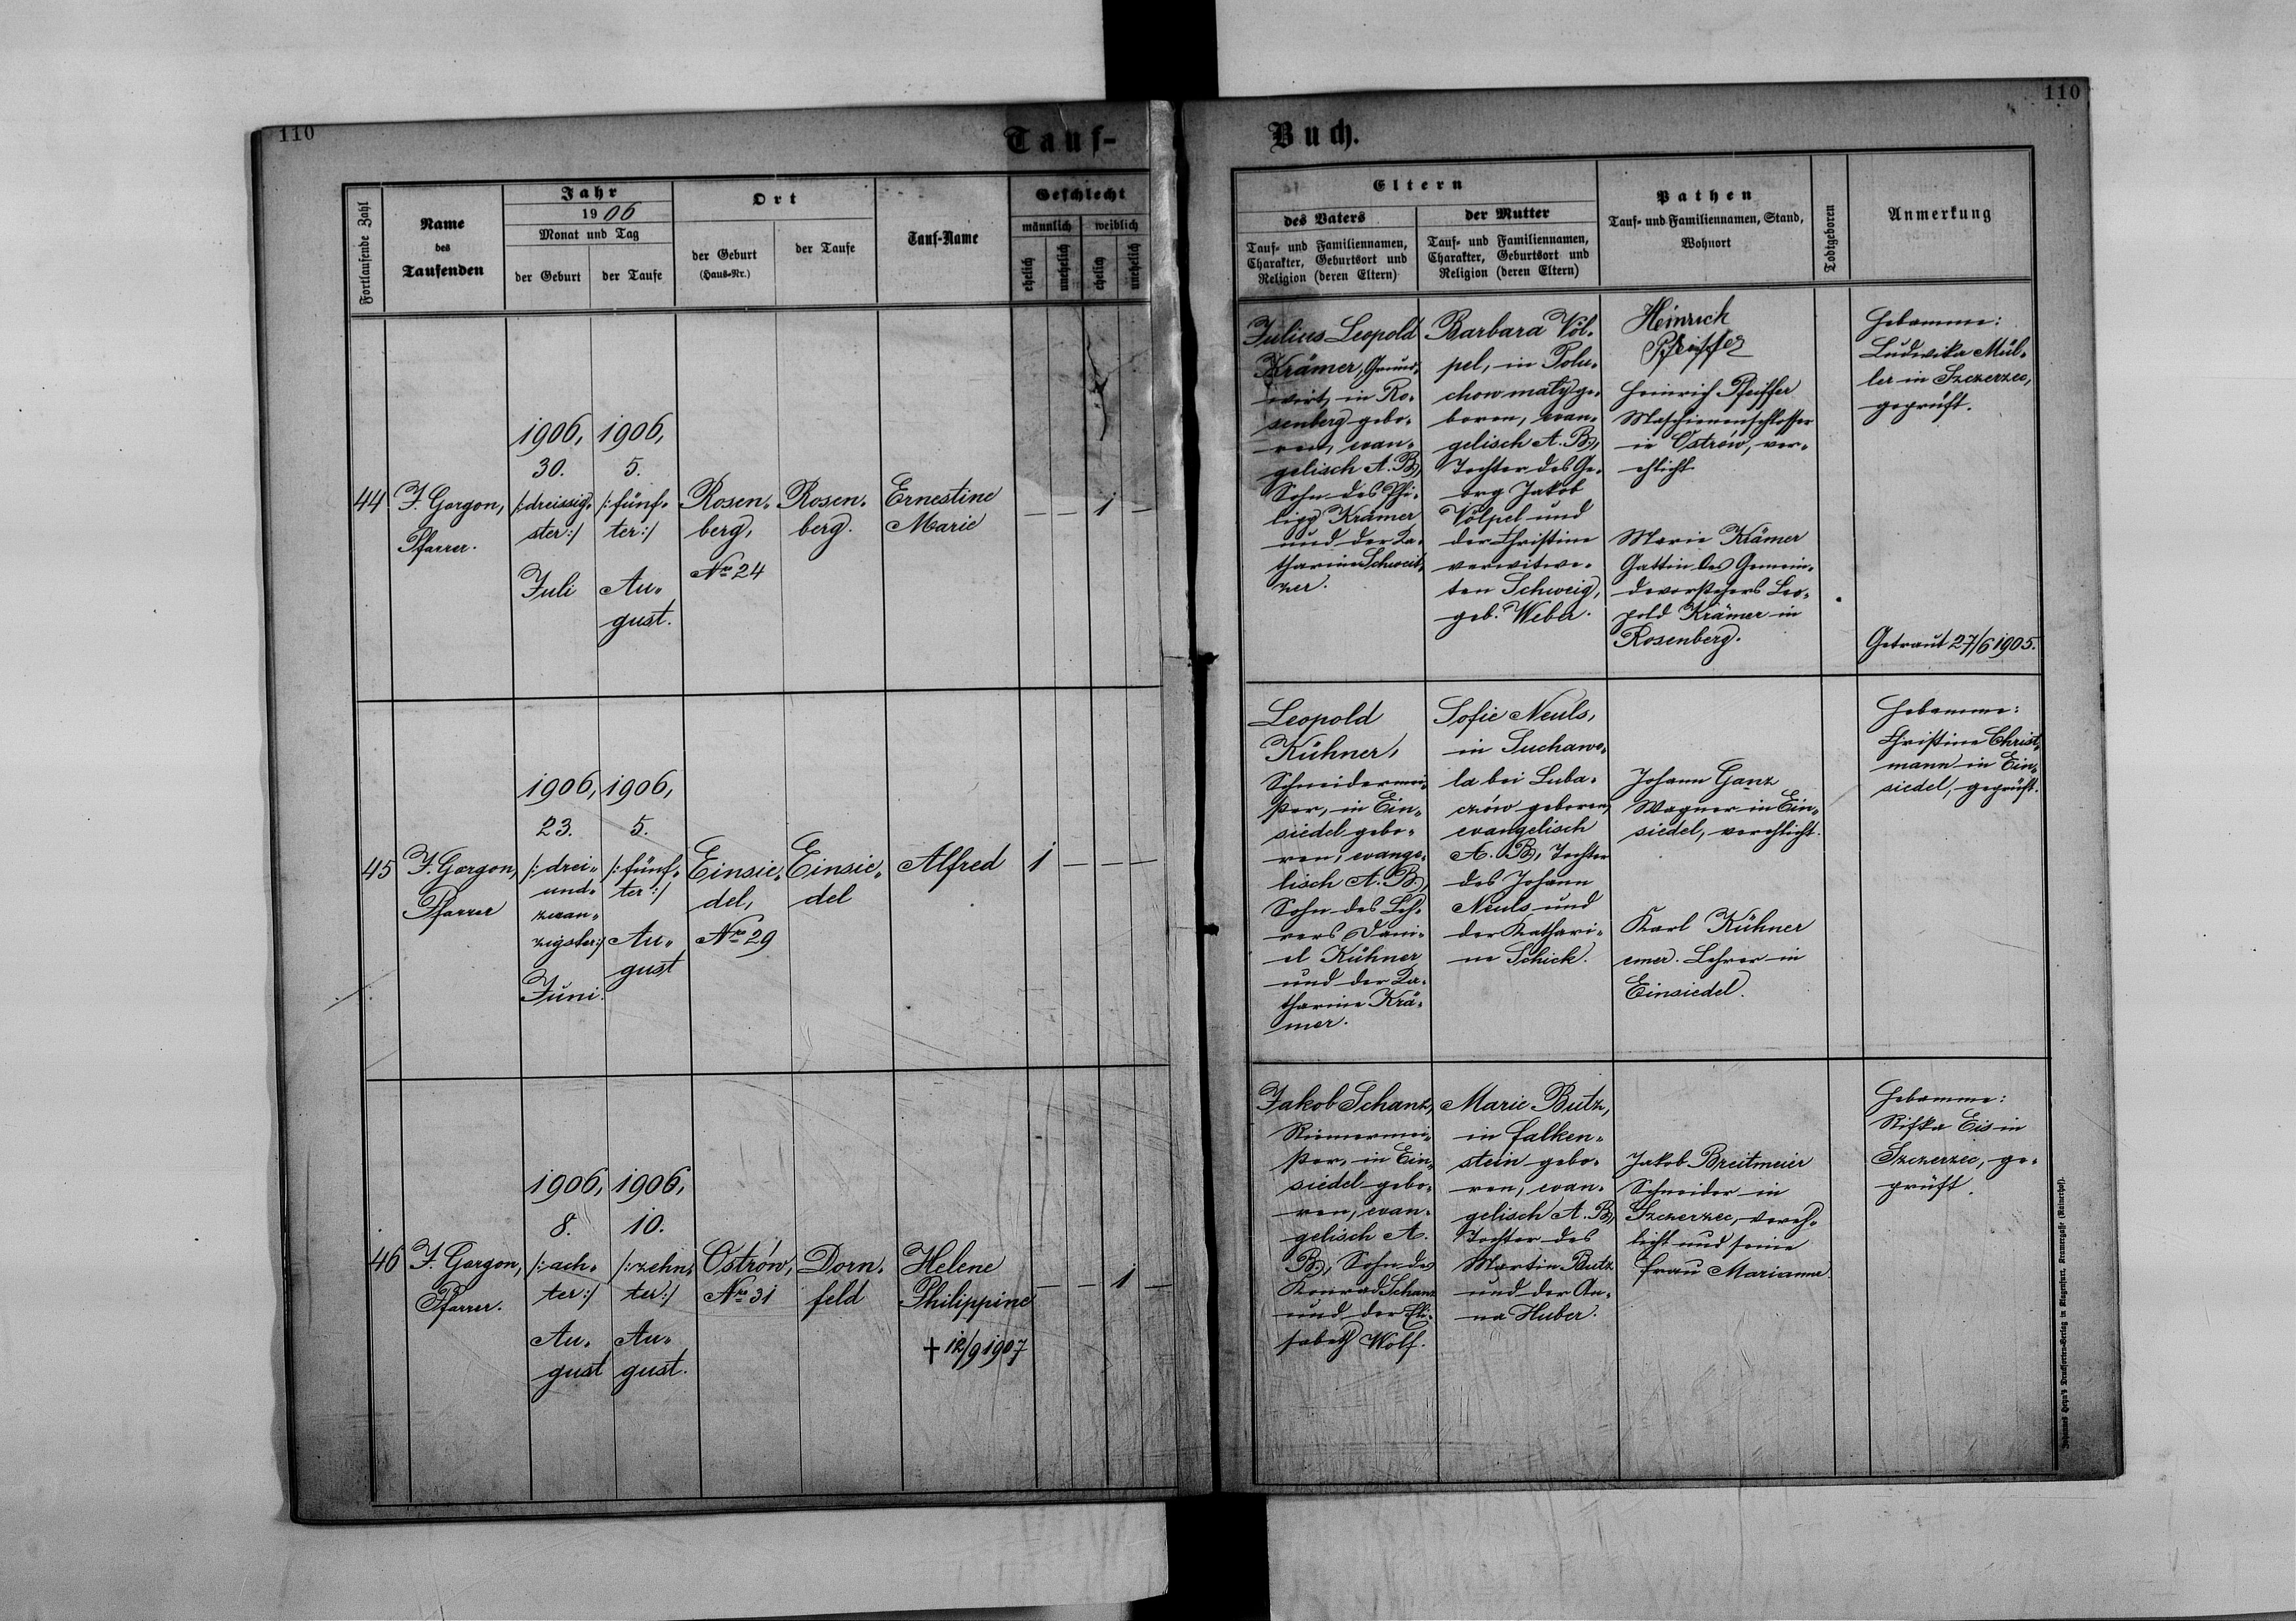 110
110
Tauf-
Buch.
Fortlaufende Zahl
Name
des
Taufenden
Jahr
1906
Monat und Tag
der Geburt
der Taufe
Ort
der Geburt
(Haus-Nr.)
der Taufe
Tauf-Name
Geschlecht
männlich
weiblich
ehelich
unehelich
ehelich
unehelich
Eltern
des Vaters
Tauf- und Familiennamen,
Charakter, Geburtsort und
Religion (deren Eltern)
der Mutter
Tauf- und Familiennamen,
Charakter, Geburtsort und
Religion (deren Eltern)
Pathen
Tauf- und Familiennamen, Stand,
Wohnort
Todtgeboren
Anmerkung
44
F. Gorgon,
Pfarrer.
1906,
30.
/:dreissig„
ster:/
Juli
1906,
5.
/:fünf„
ter:/
Au„
gust.
Rosen„
berg,
Nro 24
Rosen„
berg.
Ernestine
Marie
— — 1 —
Julius Leopold
Krämer, Grund„
wirt, in Ro„
senberg gebo„
ren, evan„
gelisch A. B.,
Sohn des Phi„
lipp Krämer
und der Ka„
tharina Schweit„
zer.
Barbara Völ„
pel, in Polu„
chow mały ge„
boren, evan„
gelisch A. B.,
Tochter des Ge„
org Jakob
Völpel und
der Christine
verwitwe„
ten Schweig,
geb. Weber.
Heinrich
Pfeiffer
Heinrich Pfeiffer
Maschienenschlosser
in Ostrów, ver„
ehlicht.
Marie Krämer
Gattin des Gemein„
devorstehers Leo„
pold Krämer in
Rosenberg.
Hebamme:
Ludwika Mül„
ler in Szczerzec,
geprüft.
Getraut 27/6 1905.
45
F. Gorgon,
Pfarrer
1906,
23.
/:drei„
und„
zwan„
zigster:/
Juni.
1906,
5.
/:fünf„
ter:/
Au„
gust
Einsie„
del,
Nro 29
Einsie„
del
Alfred
1 — — —
Leopold
Kühner,
Schneidermei„
ster, in Ein„
siedel gebo„
ren, evange„
lisch A. B.,
Sohn des Leh„
rers Dani„
el Kühner
und der Ka„
tharine Krä„
mer.
Sofie Neuls,
in Suchawo„
la bei Luba„
czów geboren,
evangelisch
A. B., Tochter
des Johann
Neuls und
der Kathari„
ne Schick.
Johann Ganz
Wagner in Ein„
siedel, verehlicht.
Karl Kühner
emer. Lehrer in
Einsiedel.
Hebamme:
Christine Christ„
mann in Ein„
siedel, geprüft.
46
F. Gorgon,
Pfarrer.
1906,
8.
/:ach„
ter:/
Au„
gust
1906,
10.
/:zehn„
ter:/
Au„
gust.
Ostrów,
Nro 31
Dorn„
feld
Helene
Philippine
+ 12/9 1907
— — 1 —
Jakob Schanz,
Riemermei„
ster, in Ein„
siedel gebo„
ren, evan„
gelisch A.
B., Sohn des
Konrad Schanz
und der Eli„
sabeth Wolf.
Marie Butz,
in Falken„
stein gebo„
ren, evan„
gelisch A. B.,
Tochter des
Martin Butz
und der An„
na Huber.
Jakob Breitmeier
Schneider in
Szczerzec, vereh„
licht und seine
Frau Marianne
Hebamme:
Rifka Eis in
Szczerzec, ge„
prüft.
Johannes Heyn's Drucksorten-Verlag in Klagenfurt, Kramergasse (Rainerhof).